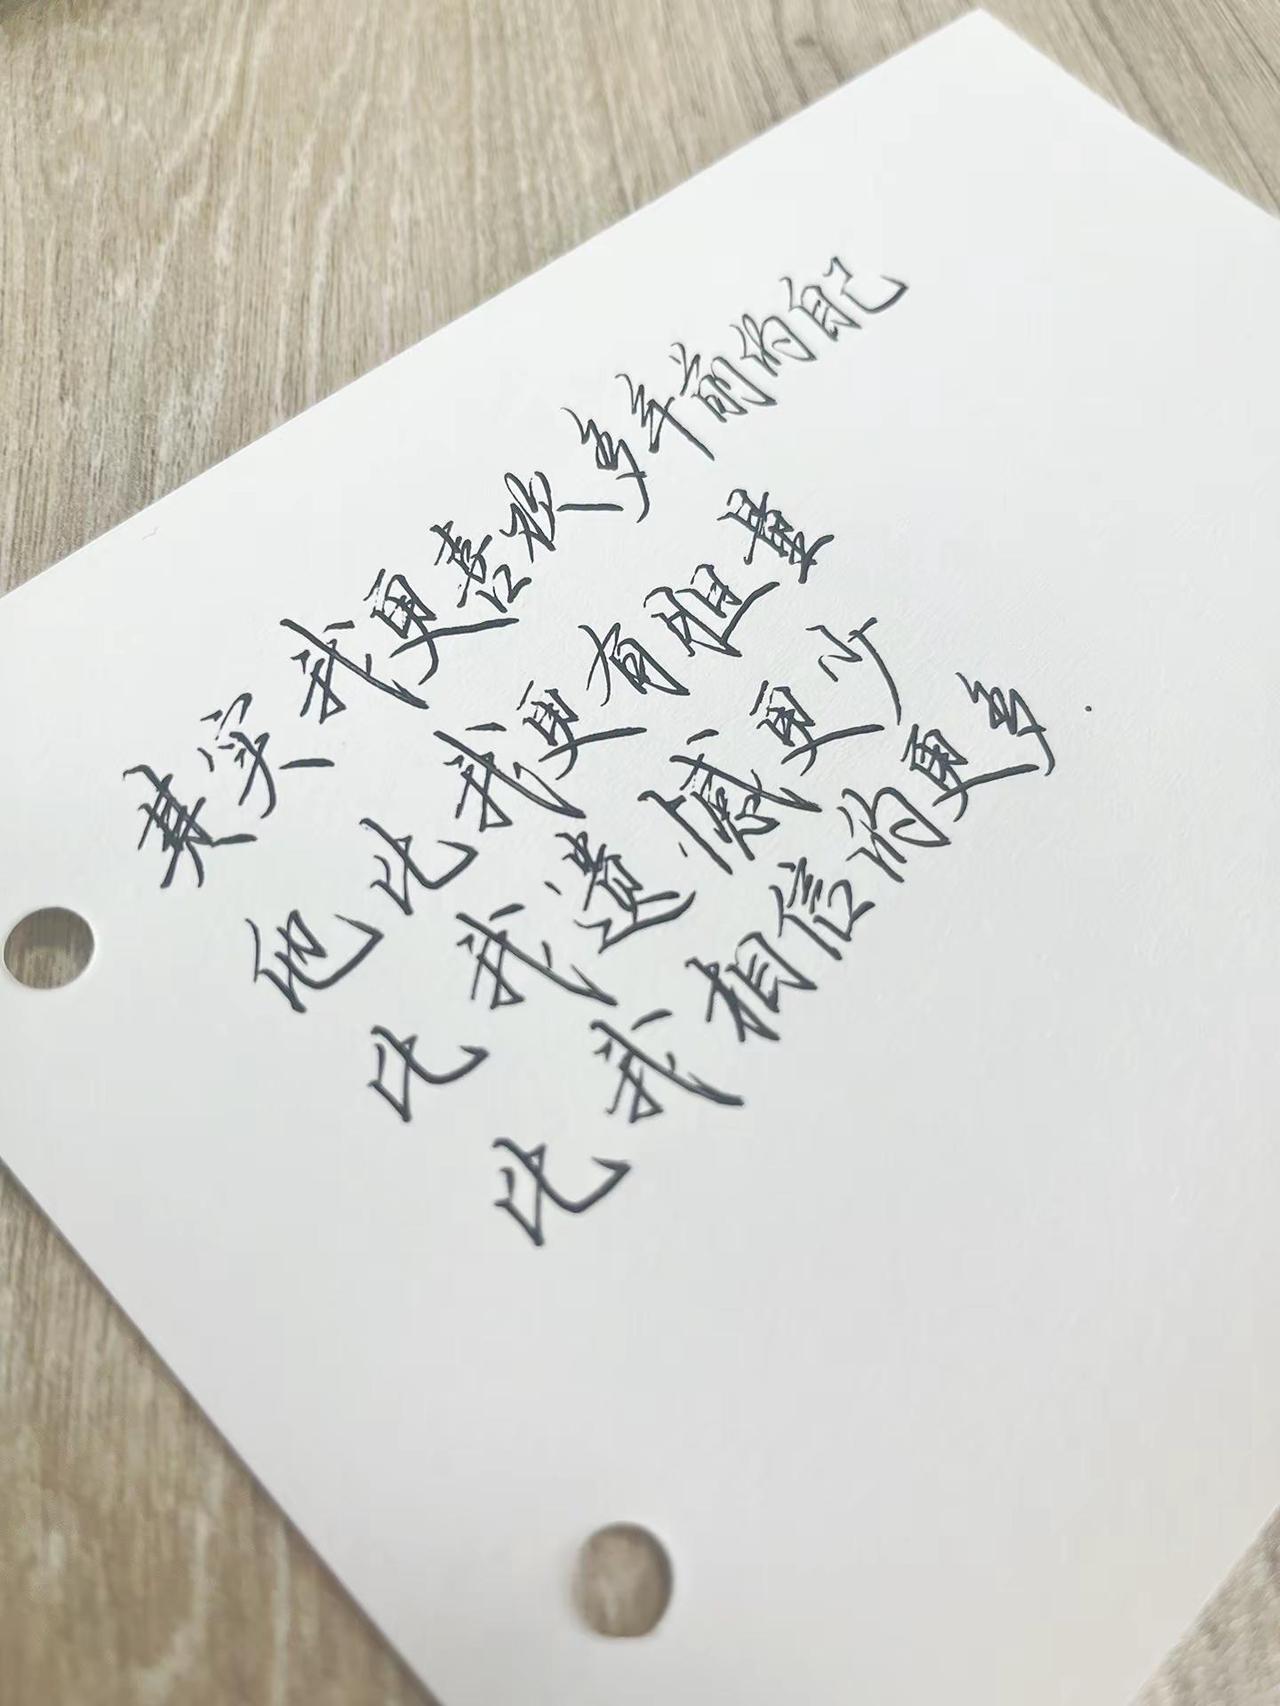 其实我更喜欢多年前的自己
他比我更有胆量
比我遗憾更少
比我相信的更多.